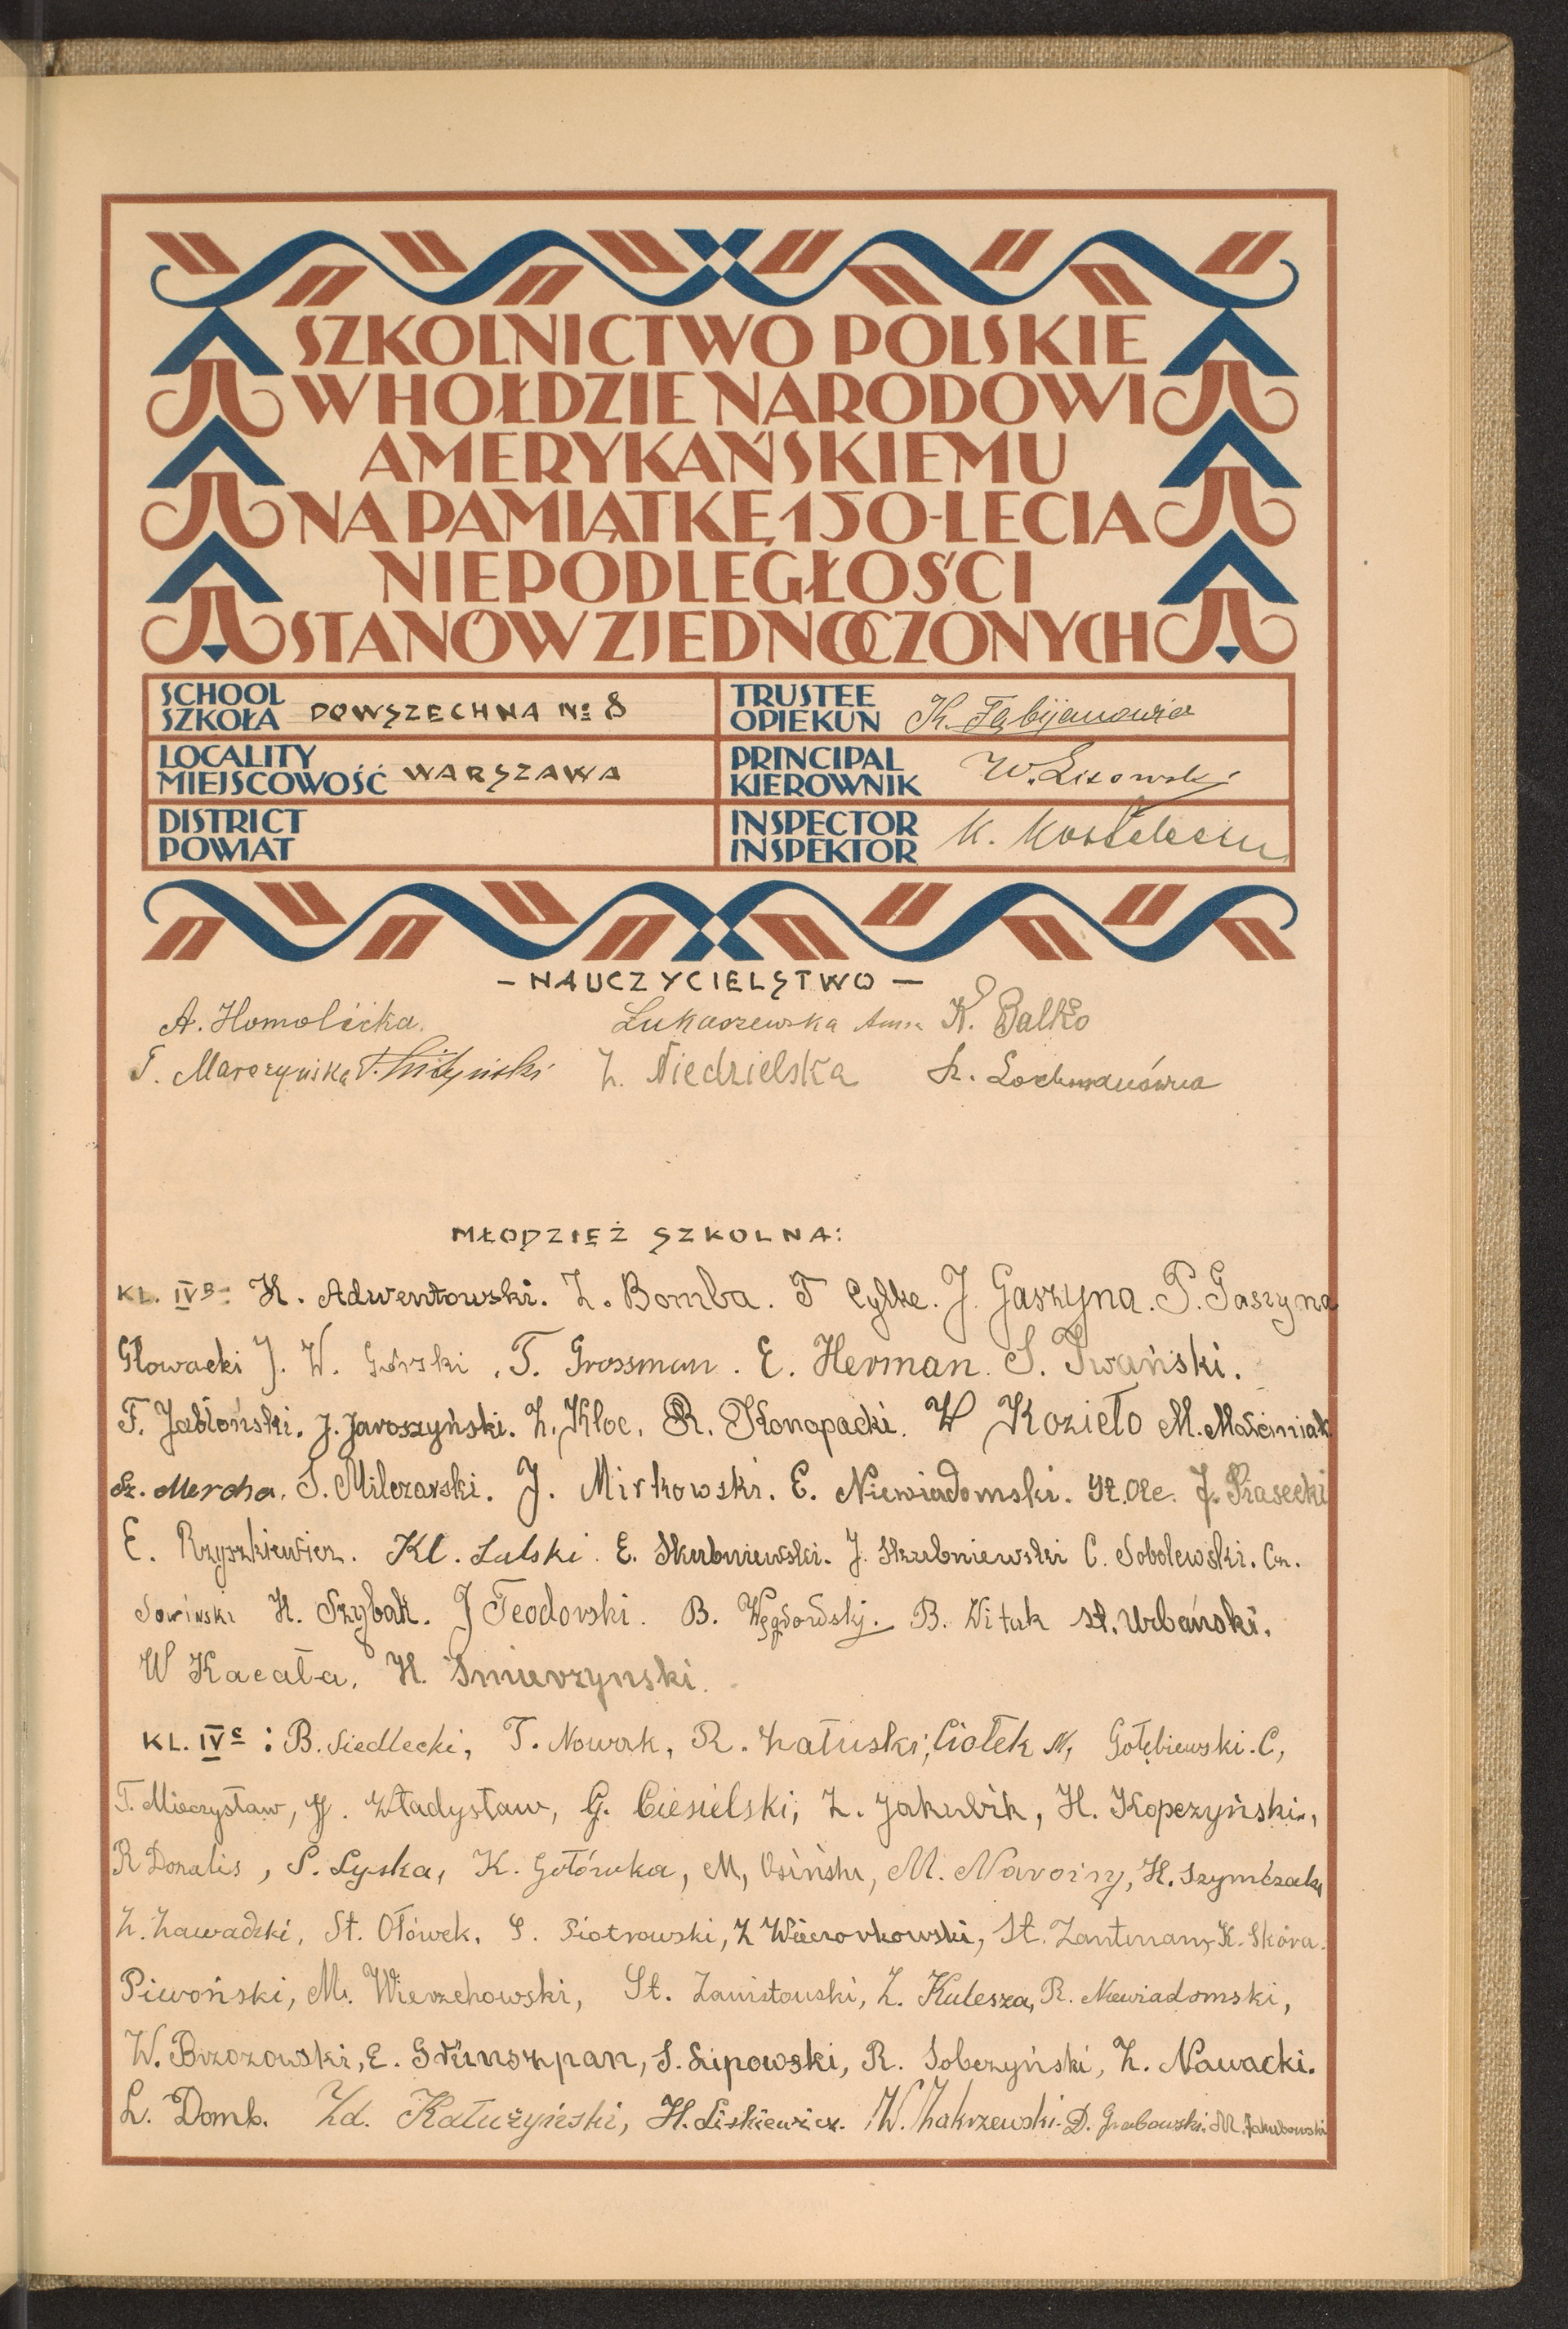 SZKOLNICTWO POLSKIE
W HOŁDZIE NARODOWI
AMERYKAŃSKIEMU
NA PAMIĄTKĘ 150-LECIA
NIEPODLEGŁOŚCI
STANÓW ZJEDNOCZONYCH
SCHOOL
SZKOŁA POWSZECHNA No 8
TRUSTEE
OPIEKUN K. Fabijanowia
LOCALITY
MIEJSCOWOŚĆ WARSZAWA
PRINCIPAL
KIEROWNIK W. Lisowski
DISTRICT
POWIAT
INSPECTOR
INSPEKTOR K.
- NAUCZYCIELSTWO -
A. Homolicka. Łukaszewska Anna K. Balko
T. Marczyńska Z. Niedzielska
MŁODZIEŻ SZKOLNA:
KL. IVB: H. Adwentowski. Z. Bomba. T Cylke. J. Gaszyna. P. Gaszyna
Głowacki J. W. Górski. T. Grossman. E. Herman. S. Iwański.
F. Jabłoński. J. Jaroszyński. Z. Kłoc. R. Konopacki. W Kozieło M. Maleiniak
Sz. Mercha. S. Milczarski. J. Mirkowski. E. Niewiadomski. J. Piasecki
E. Rzyszkiewicz. Kl. Lulski. E. Skubniewski. J. Skubniewski C. Sobolewski. Cz.
Sowiński H. Szybak. J Teodorski. B. B. Wituk St. Urbański.
W Kacała. H. Smierzynski.
KL. IVc: B. Siedlecki, T. Nowak, R. Załuski, Ciołek N, Gołębiewski. C,
T. Mieczysław, J. Władysław, G. Ciesielski, Z. Jakubik, H. Kopczyński,
R Donalis, S. Łyska, K. Gołówka, M, Osiński, M. Nawoiny, H. Szymczak,
Z. Zawadzki, St. Ołówek, S. Piotrowski, Z Wieczorkowski, St. Zantman, K. Skóra.
Piwoński, M. Wierzchowski, St. Zawistowski, Z. Kulesza, R. Niewiadomski,
W. Brzozowski, E. Grünszpan, S. Lipowski, R. Sobczyński, Z. Nawacki.
L. Domb. Zd. Kałużyński, H. Liskiewicz. W. Zakrzewski. D. Grabowski. M. Jakubowski